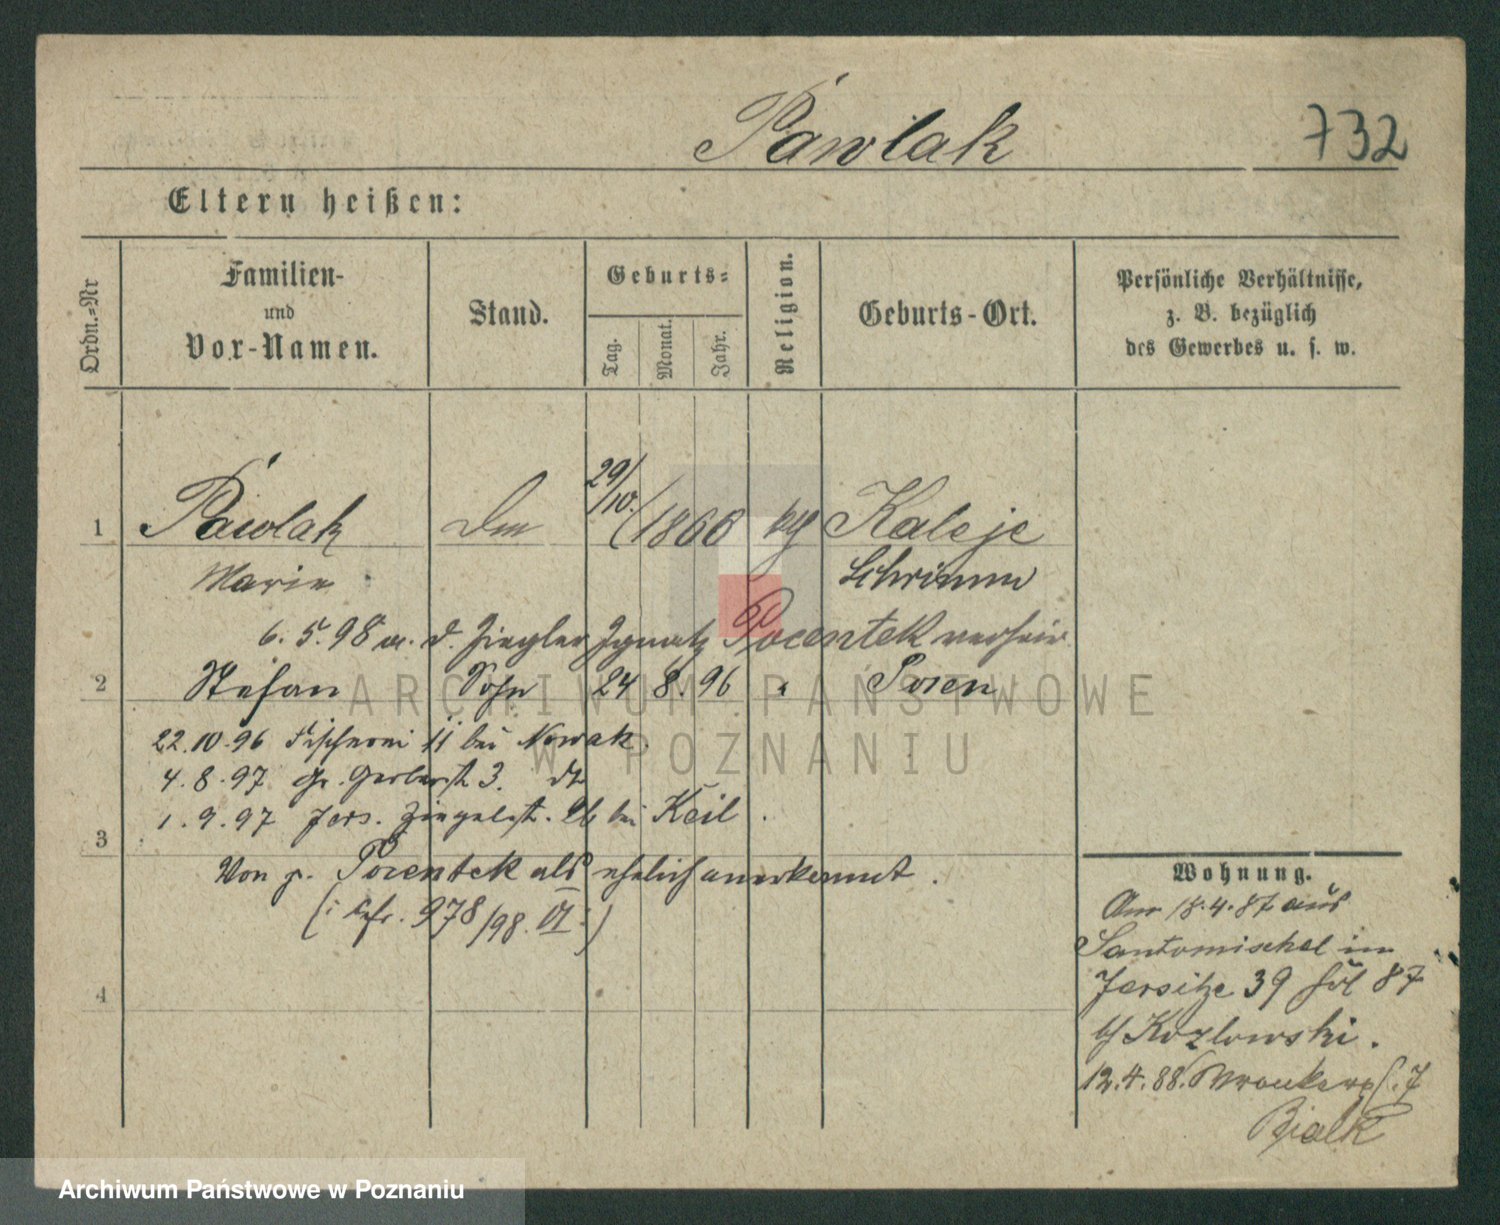 Pawlak 732
Eltern heißen:
Ordn.-Nr
Familien-
und
Vor-Namen.
Stand.
Geburts-
Tag.
Monat.
Jahr.
Religion.
Geburts-Ort.
Persönliche Verhältnisse,
z. B. bezüglich
des Gewerbes u. s. w.
1 Pawlak 29/10. 1866 Kaleje
Marie Schrimm
6. 5. 98 m. d. Ziegler Ignatz Pocentek verheir
2 Stefan Sohn 24 8. 96 " Posen
22.10.96 Fischerei 11 bei Nowak.
4.8.97 Gr. Gerberst 3.
1.9.97 Jers. Ziegelst. bei Keil.
3
Von p. Pocentek als ehelich anerkannt.
(: 978/98. VI :)
4
Wohnung.
Am 18.4.87 aus
Santomischel in
Jersitze 39 87
b/ Kozlowski.
12.4.88. Wronkerpl. 7
Bialk
ARCHIWUM PAŃSTWOWE
W POZNANIU
Archiwum Państwowe w Poznaniu